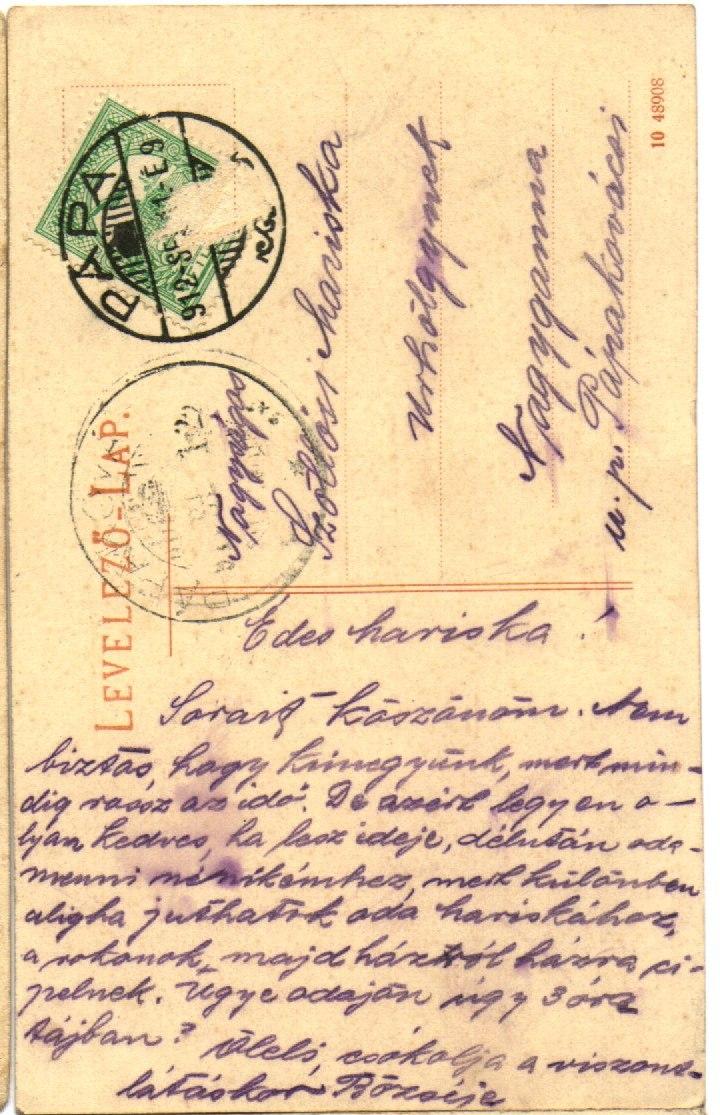 LEVELEZŐ-LAP.
10 48908
PÁPA
912
Nagyságos
Szöllősi Mariska
urhölgynek
Nagyganna
u. p. Pápakovácsi
Édes Mariska!
Sorait köszönöm. Nem
biztos, hogy kimegyünk, mert min-
dig rossz az idő. De azért legyen o-
lyan kedves, ha lesz ideje, délután oda-
menni nénikémhez, mert különben
aligha juthatok oda Mariskához,
a rokonok, majd házról házra ci-
pelnek. Ugye odajön úgy 3 óra
tájban?
Öleli, csókolja a viszont-
látáskor Rözséje